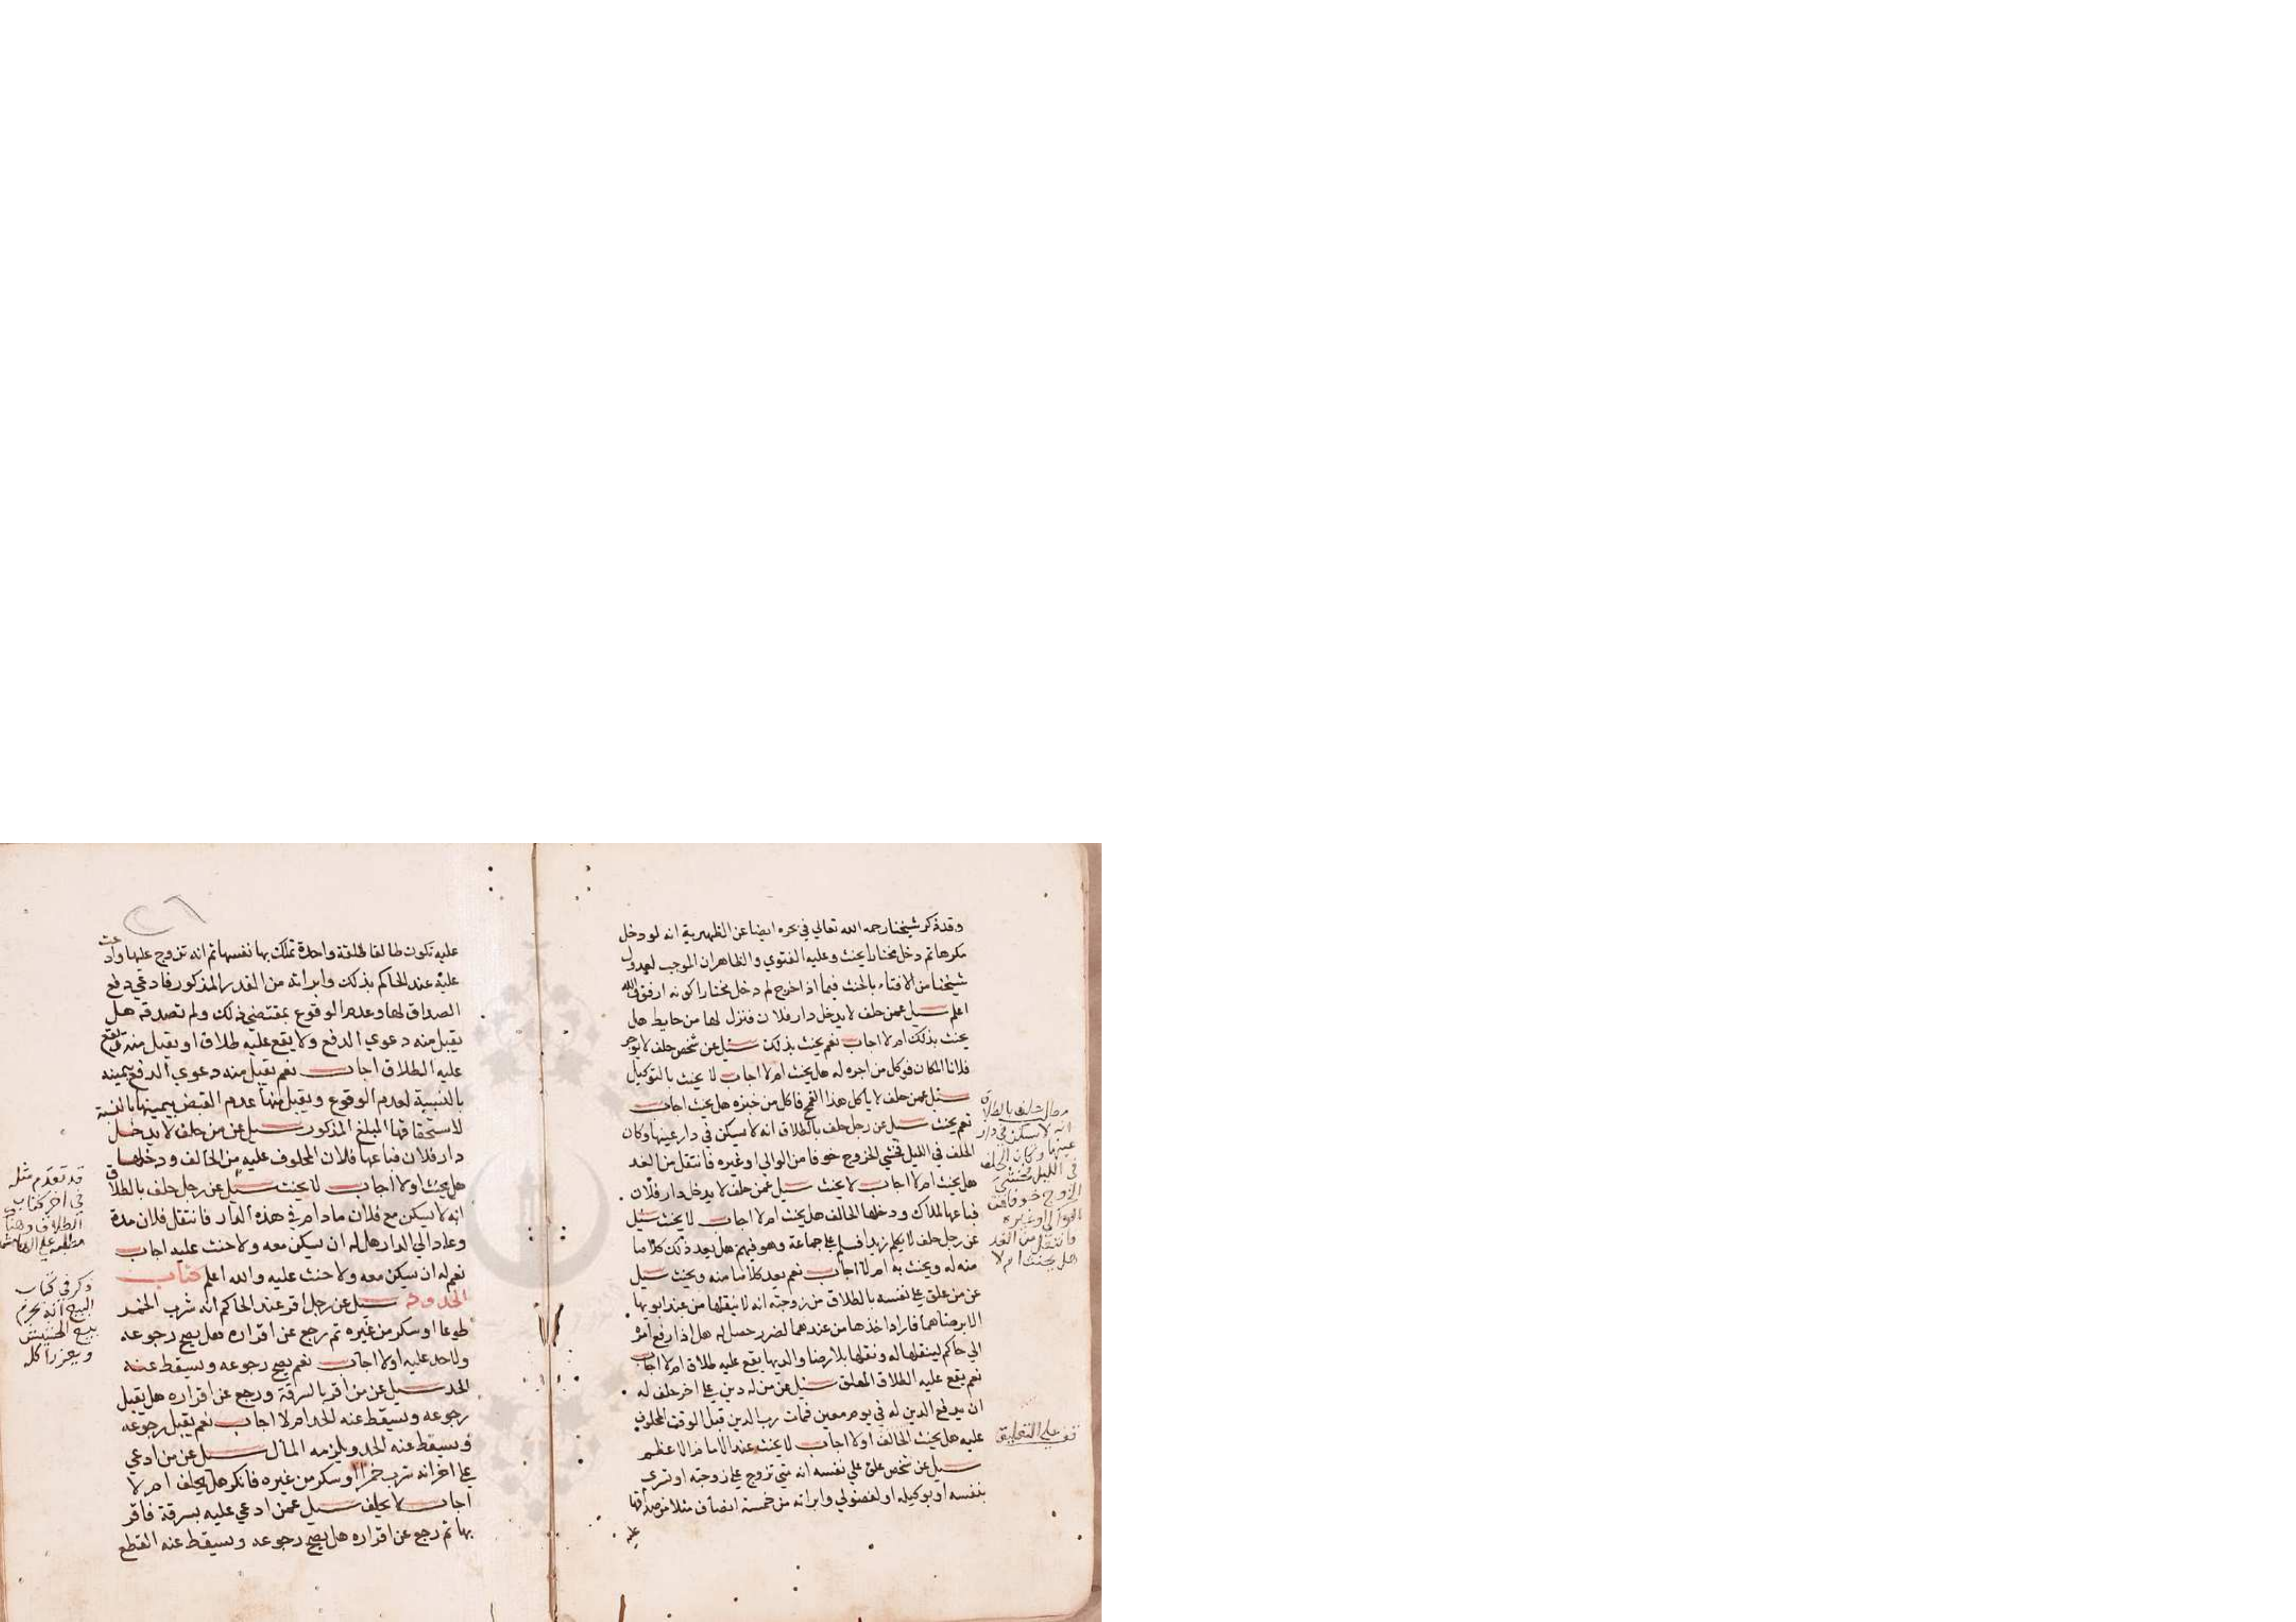 وقد ذكر شيخنا رحمه الله تعالي في بحره ايضا عن الظهيرية انه لو دخل
مكرها ثم دخل مختارا يحنث وعليه الفتوي والظاهر ان الموجب لعدول
شيخنا من الافتاء بالحنث فيما اذا خرج ثم دخل مختارا كونه ارفق والله
اعلم سيل عمن حلف لا يدخل دار فلان فنزل لها من حايط هل
يحنث بذلك ام لا اجاب نعم يحنث بذلك سيل عن شخص حلف لا يوجر
فلانا المكان فوكل من اجره له هل يحنث ام لا اجاب لا يحنث بالتوكيل
سيل عمن حلف لا ياكل هذا القمح فاكل من خبزه هل يحنث اجاب
نعم يحنث سيل عن رجل حلف بالطلاق انه لا يسكن في دار عينها وكان
الحلف في الليل فخشي الخروج خوفا من الوالي او غيره فانتقل من الغد
هل يحنث ام لا اجاب لا يحنث سيل عمن حلف لا يدخل دار فلان
فباعها المالك ودخلها الحالف هل يحنث ام لا اجاب لا يحنث سيل
عن رجل حلف لا يكلم زيدا فسلم علي جماعة وهو فيهم هل يعد ذلك كلاما
منه له ويحنث به ام لا اجاب نعم يعد كلاما منه ويحنث سيل
عن من علق علي نفسه بالطلاق من زوجته انه لا ينقلها من عند ابويها
الا برضاهما فاراد اخذها من عندهما لضرر حصل له هل اذا رفع امره
الي حاكم لينقلها له ونقلها بلا رضا والديها يقع عليه طلاق ام لا اجاب
نعم يقع عليه الطلاق المعلق سيل عن من له دين علي اخر حلف له
ان يدفع الدين له في يوم معين فمات رب الدين قبل الوقت المحلوف
عليه هل يحنث الحالف اولا اجاب لا يحنث عند الامام الاعظم
سيل عن شخص علق علي نفسه انه متي تزوج علي زوجته او تسري
بنفسه او بوكيله او لفضولي وابراته من خمسة انصاف مثلا من صداقها
عليه
حلف بالطلاق
انه لا يسكن في دار
عينها وكان الحلف
في الليل فخشي
الخروج خوفا من
الوالي او غيره
فانتقل من الغد
هل يحنث ام لا
قف علي التعاليق
٢٦
عليه تكون طالقا طلقة واحدة تملك بها نفسها ثم انه تزوج عليها وادعت
عليه عند الحاكم بذلك وابراته من القدر المذكور فادعي دفع
الصداق لها وعدم الوقوع بمقتضي ذلك ولم تصدقه هل
يقبل منه دعوي الدفع ولا يقع عليه طلاق او يقبل منه ويقع
عليه الطلاق اجاب نعم يقبل منه دعوي الدفع بيمينه
بالنسبة لعدم الوقوع ويقبل منها عدم القبض بيمينها بالنسبة
لاستحقاقها المبلغ المذكور سيل عن من حلف لا يدخل
دار فلان فباعها فلان المحلوف عليه من الحالف ودخلها
هل يحنث اولا اجاب لا يحنث سيل عن رجل حلف بالطلاق
انه لا يسكن مع فلان مادام في هذه الدار فانتقل فلان مدة
وعاد الي الدار هل له ان يسكن معه ولا حنث عليه اجاب
نعم له ان يسكن معه ولا حنث عليه والله اعلم كتاب
الحدود سيل عن رجل اقر عند الحاكم انه شرب الخمر
طوعا او سكر من غيره ثم رجع عن اقراره هل يصح رجوعه
ولا حد عليه اولا اجاب نعم يصح رجوعه ويسقط عنه
الحد سيل عن من اقر بالسرقة ورجع عن اقراره هل يقبل
رجوعه ويسقط عنه الحد ام لا اجاب نعم يقبل رجوعه
ويسقط عنه الحد ويلزمه المال سيل عن من ادعي
علي اخر انه شرب خمرا او سكر من غيره فانكر هل يحلف ام لا
اجاب لا يحلف سيل عمن ادعي عليه بسرقة فاقر
بها ثم رجع عن اقراره هل يصح رجوعه ويسقط عنه القطع
قد تقدم مثله
في اخر كتاب
الطلاق وهنا
ذكر في كتاب
البيع انه يحرم
بيع الحشيش
ويعزر اكله